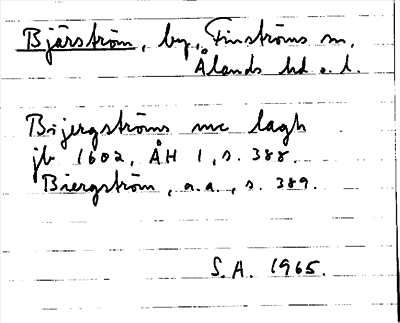 Bjärström, by, Finströms sn,
Ålands hd o. l.
Bijergströms mc lagh
jb 1602, ÅH 1, s. 388.
Biergström, a.a., s. 389.
S.A. 1965.